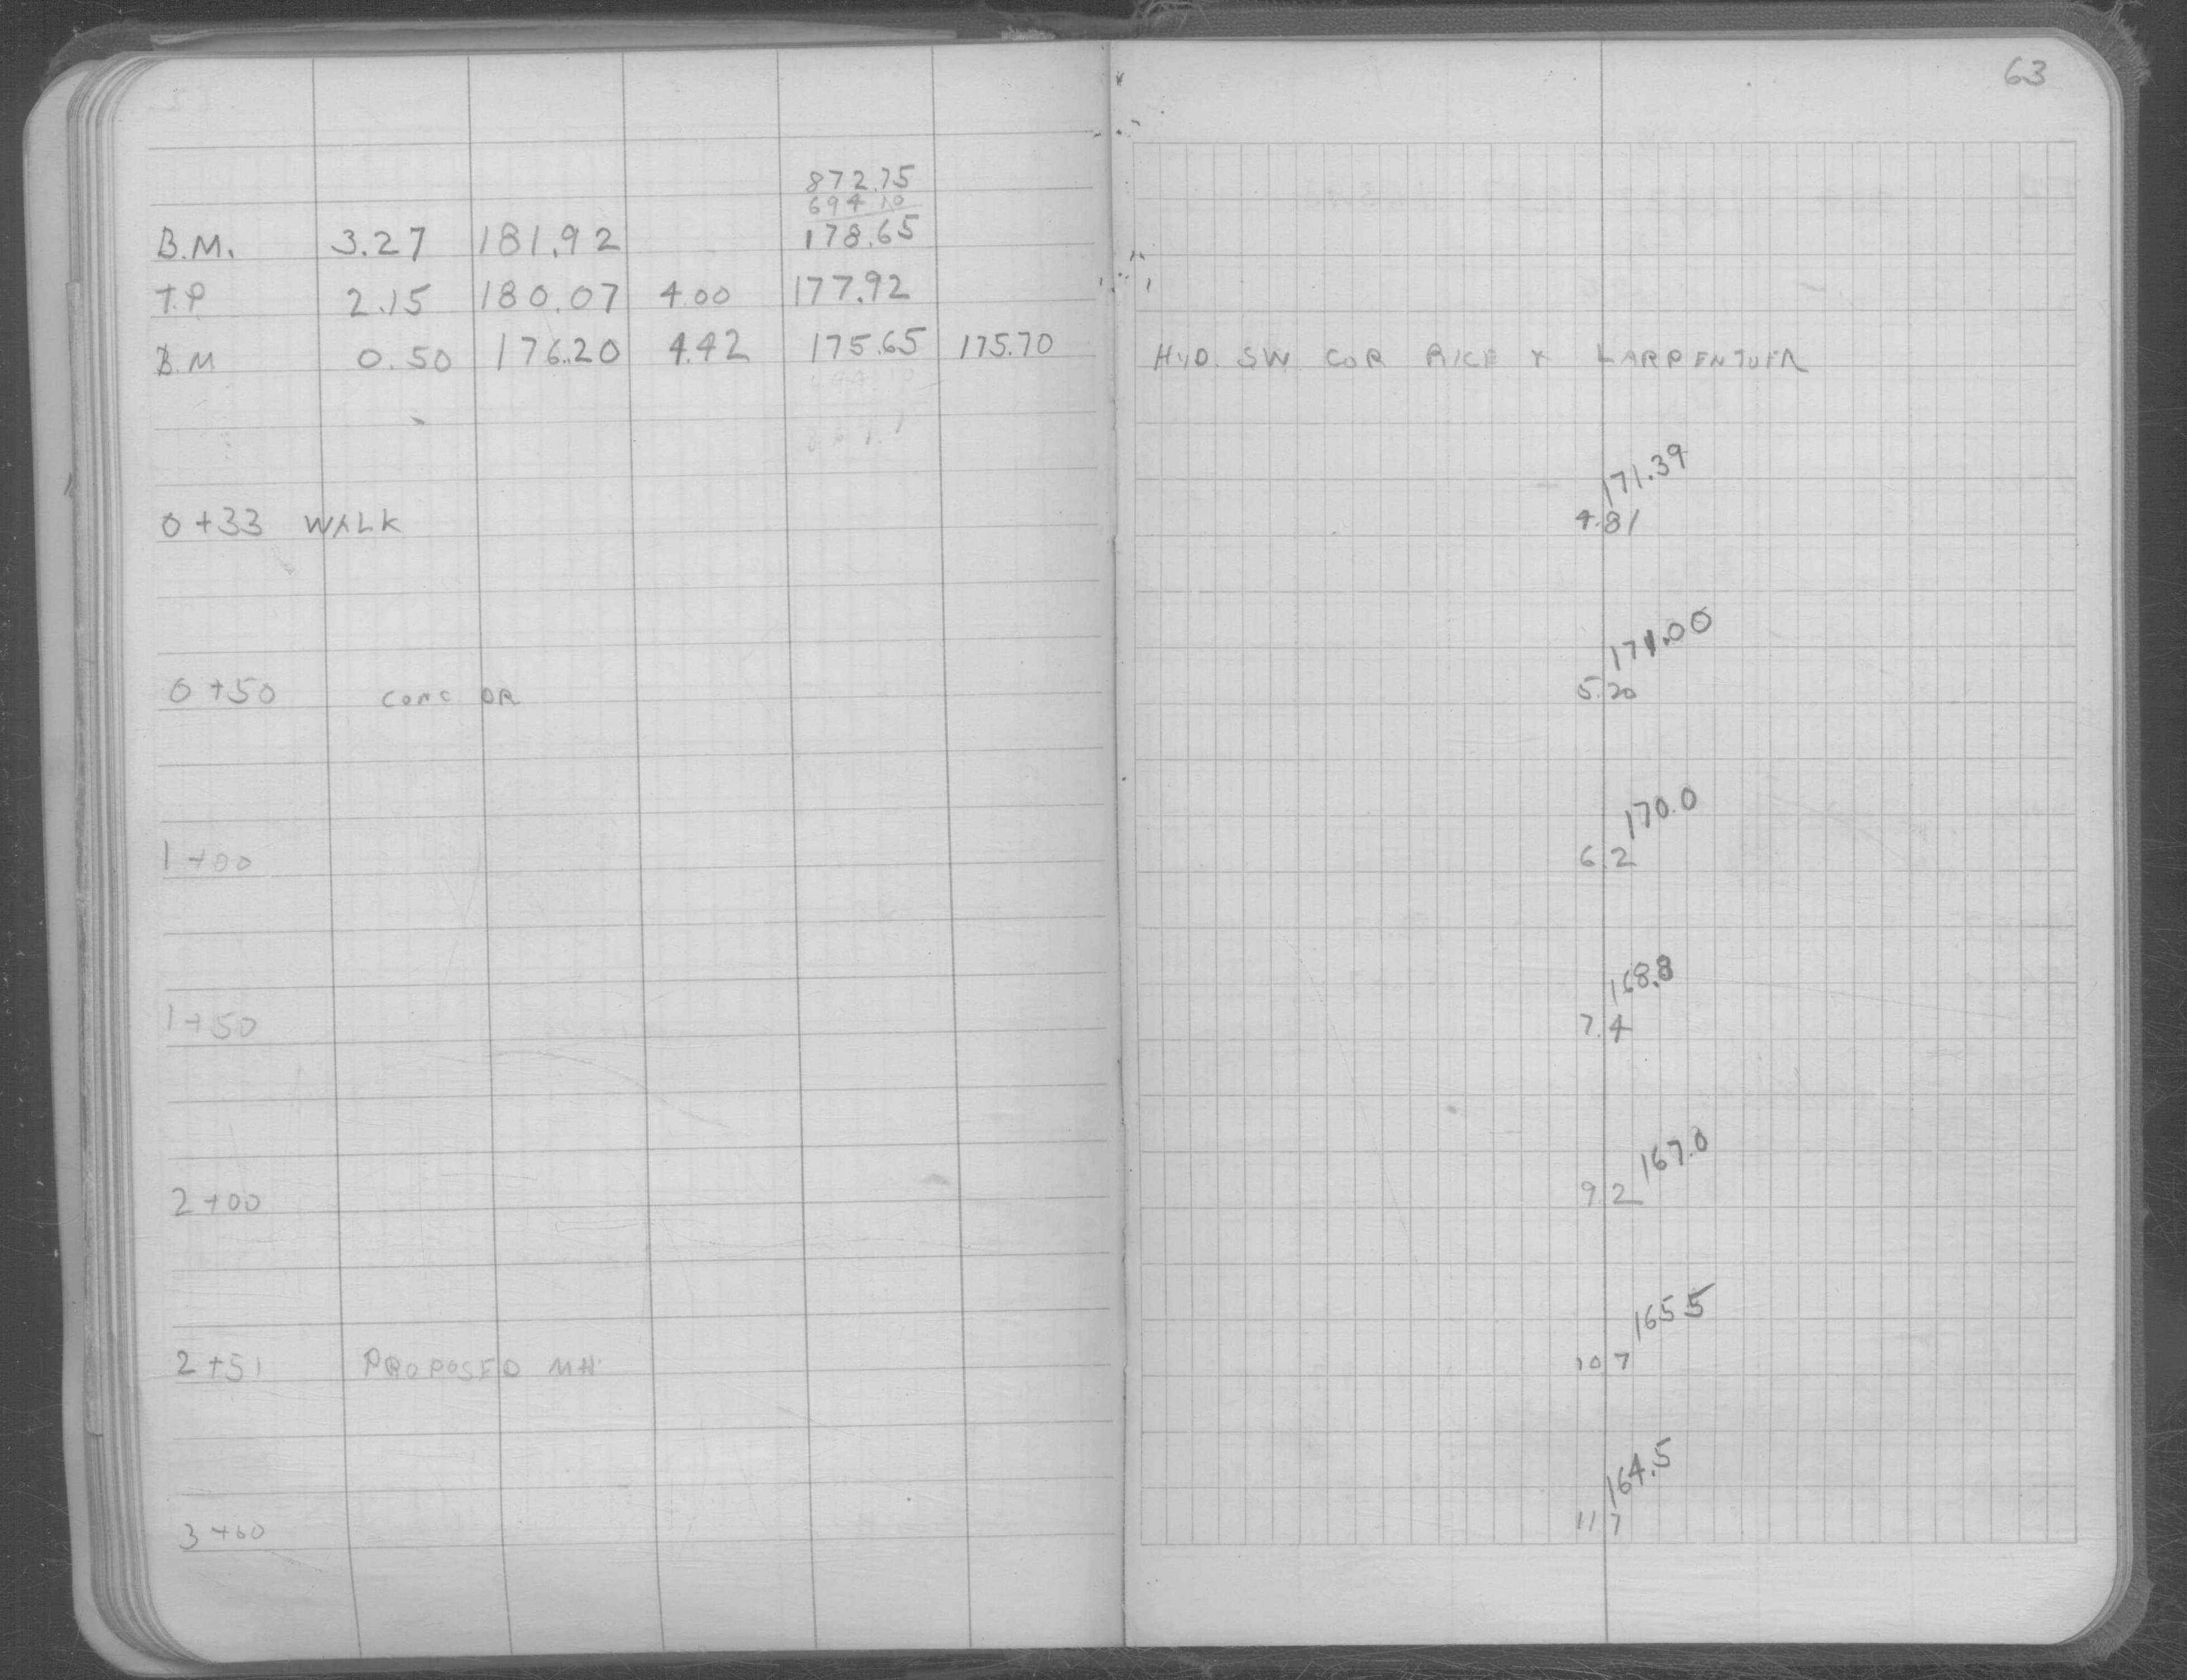 63
872.75
694.10
B.M. 3.27 181.92 178.65
T.P 2.15 180.07 4.00 177.92
B.M 0.50 176.20 4.42 175.65 175.70 HYD. SW COR RICE & LARPENTUER
171.39
0+33 WALK 4.81
171.00
0+50 CONC DR 5.20
170.0
1+00 6.2
168.8
1+50 7.4
167.0
2+00 9.2
165.5
2+51 PROPOSED MH 10.7
164.5
3+00 11.7